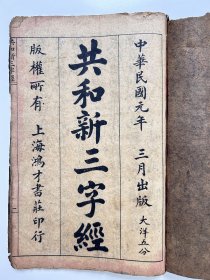 中華民國元年 三月出版 大洋五分
共和新三字經
版權所有 上海鴻才書莊印行